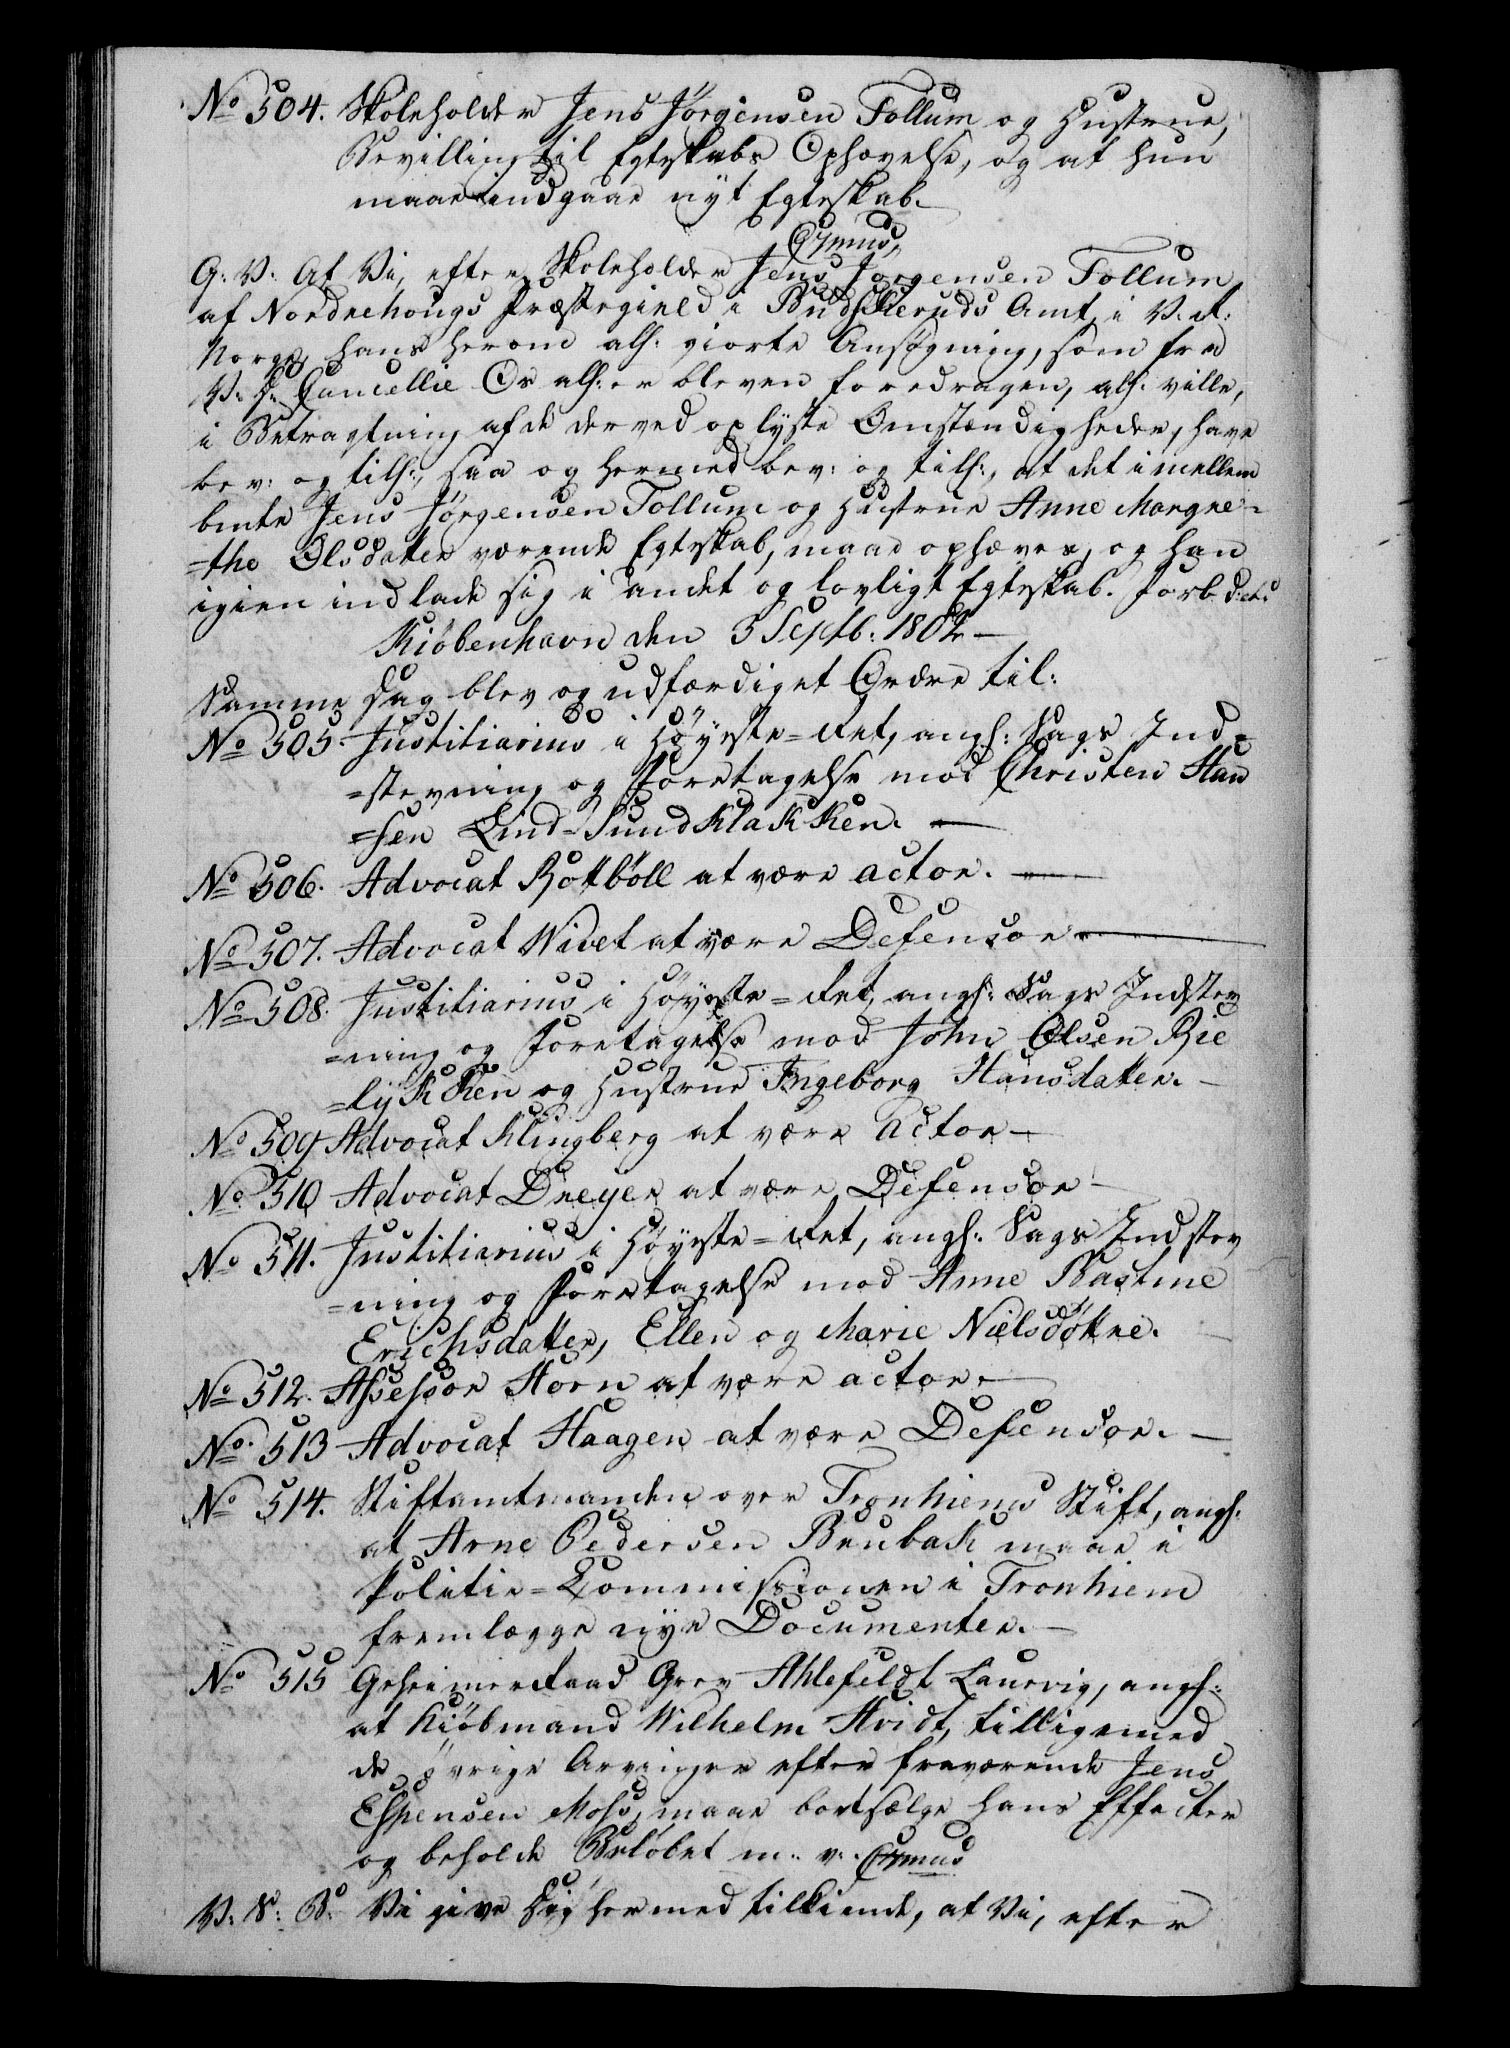 No 504. Skoleholder Jens Jörgensen Follum og Hustrue,
Bevilling til Egteskabs Ophævelse, og at hun
maae indgaae nyt Egteskab.
G: V: At Vi, efter Skoleholder Jens Jörgensen Follum
af Nordrehougs Præstegield i Budskeruds Amt, i V: R:
Norge, hans herom all: giorte Ansøgning, som fra
V: D: Cancellie Os all: er bleven foredragen, all: ville,
i Betragtning af de derved oplyste Omstændigheder, have
bev: og till:, saa og hermed bev: og till:, at det imellem
bmte Jens Jörgensen Follum og Hustrue Anne Margre=
=the Olsdatter værende Egteskab, maae ophæves, og han
igien indlade sig i andet og lovligt Egteskab. Forb: d: etc:
Kiöbenhavn den 3 Septb: 1802 —
Samme Dag blev og udfærdiget Ordre til:
No 505. Justitiarius i Höyeste=Ret, angl: Sags Ind=
=stevning og Foretagelse mod Christen Han
=sen Lind-Sundklakken. —
No 506. Advocat Rottböll at være Actor. —
No 507. Advocat Wivet at være Defensor —
No 508. Justitiarius i Höyeste=Ret, angl: Sags Indstev
=ning og Foretagelse mod John Olsen Rie
=lykken og Hustrue Ingeborg Hansdatter. —
No 509 Advocat Klingberg at være Actor —
No 510 Advocat Dreyer at være Defensor —
No 511. Justitiarius i Höyeste=Ret, angl: Sags Indstev
=ning og Foretagelse mod Anne Bastine
Erichsdatter, Ellen og Marie Nielsdøttre. —
No 512. Assessor Horn at være Actor. —
No 513 Advocat Haagen at være Defensor. —
No 514. Stiftamtmanden over Tronhiems Stift, angl:
at Arne Pedersen Brubak maae i
Politie=Commissionen i Tronhiem
fremlægge nye Documenter. —
No 515 Geheimeraad Grev Ahlefeldt Laurvig, angl:
at Kiöbmand Wilhelm Hvidt, tilligemed
de övrige Arvinger efter fraværende Jens
Espensen Moss, maae bortsælge hans Effecter
og beholde Belöbet m: v:
V: S: B: Vi give Dig hermed tilkiende, at Vi, efter